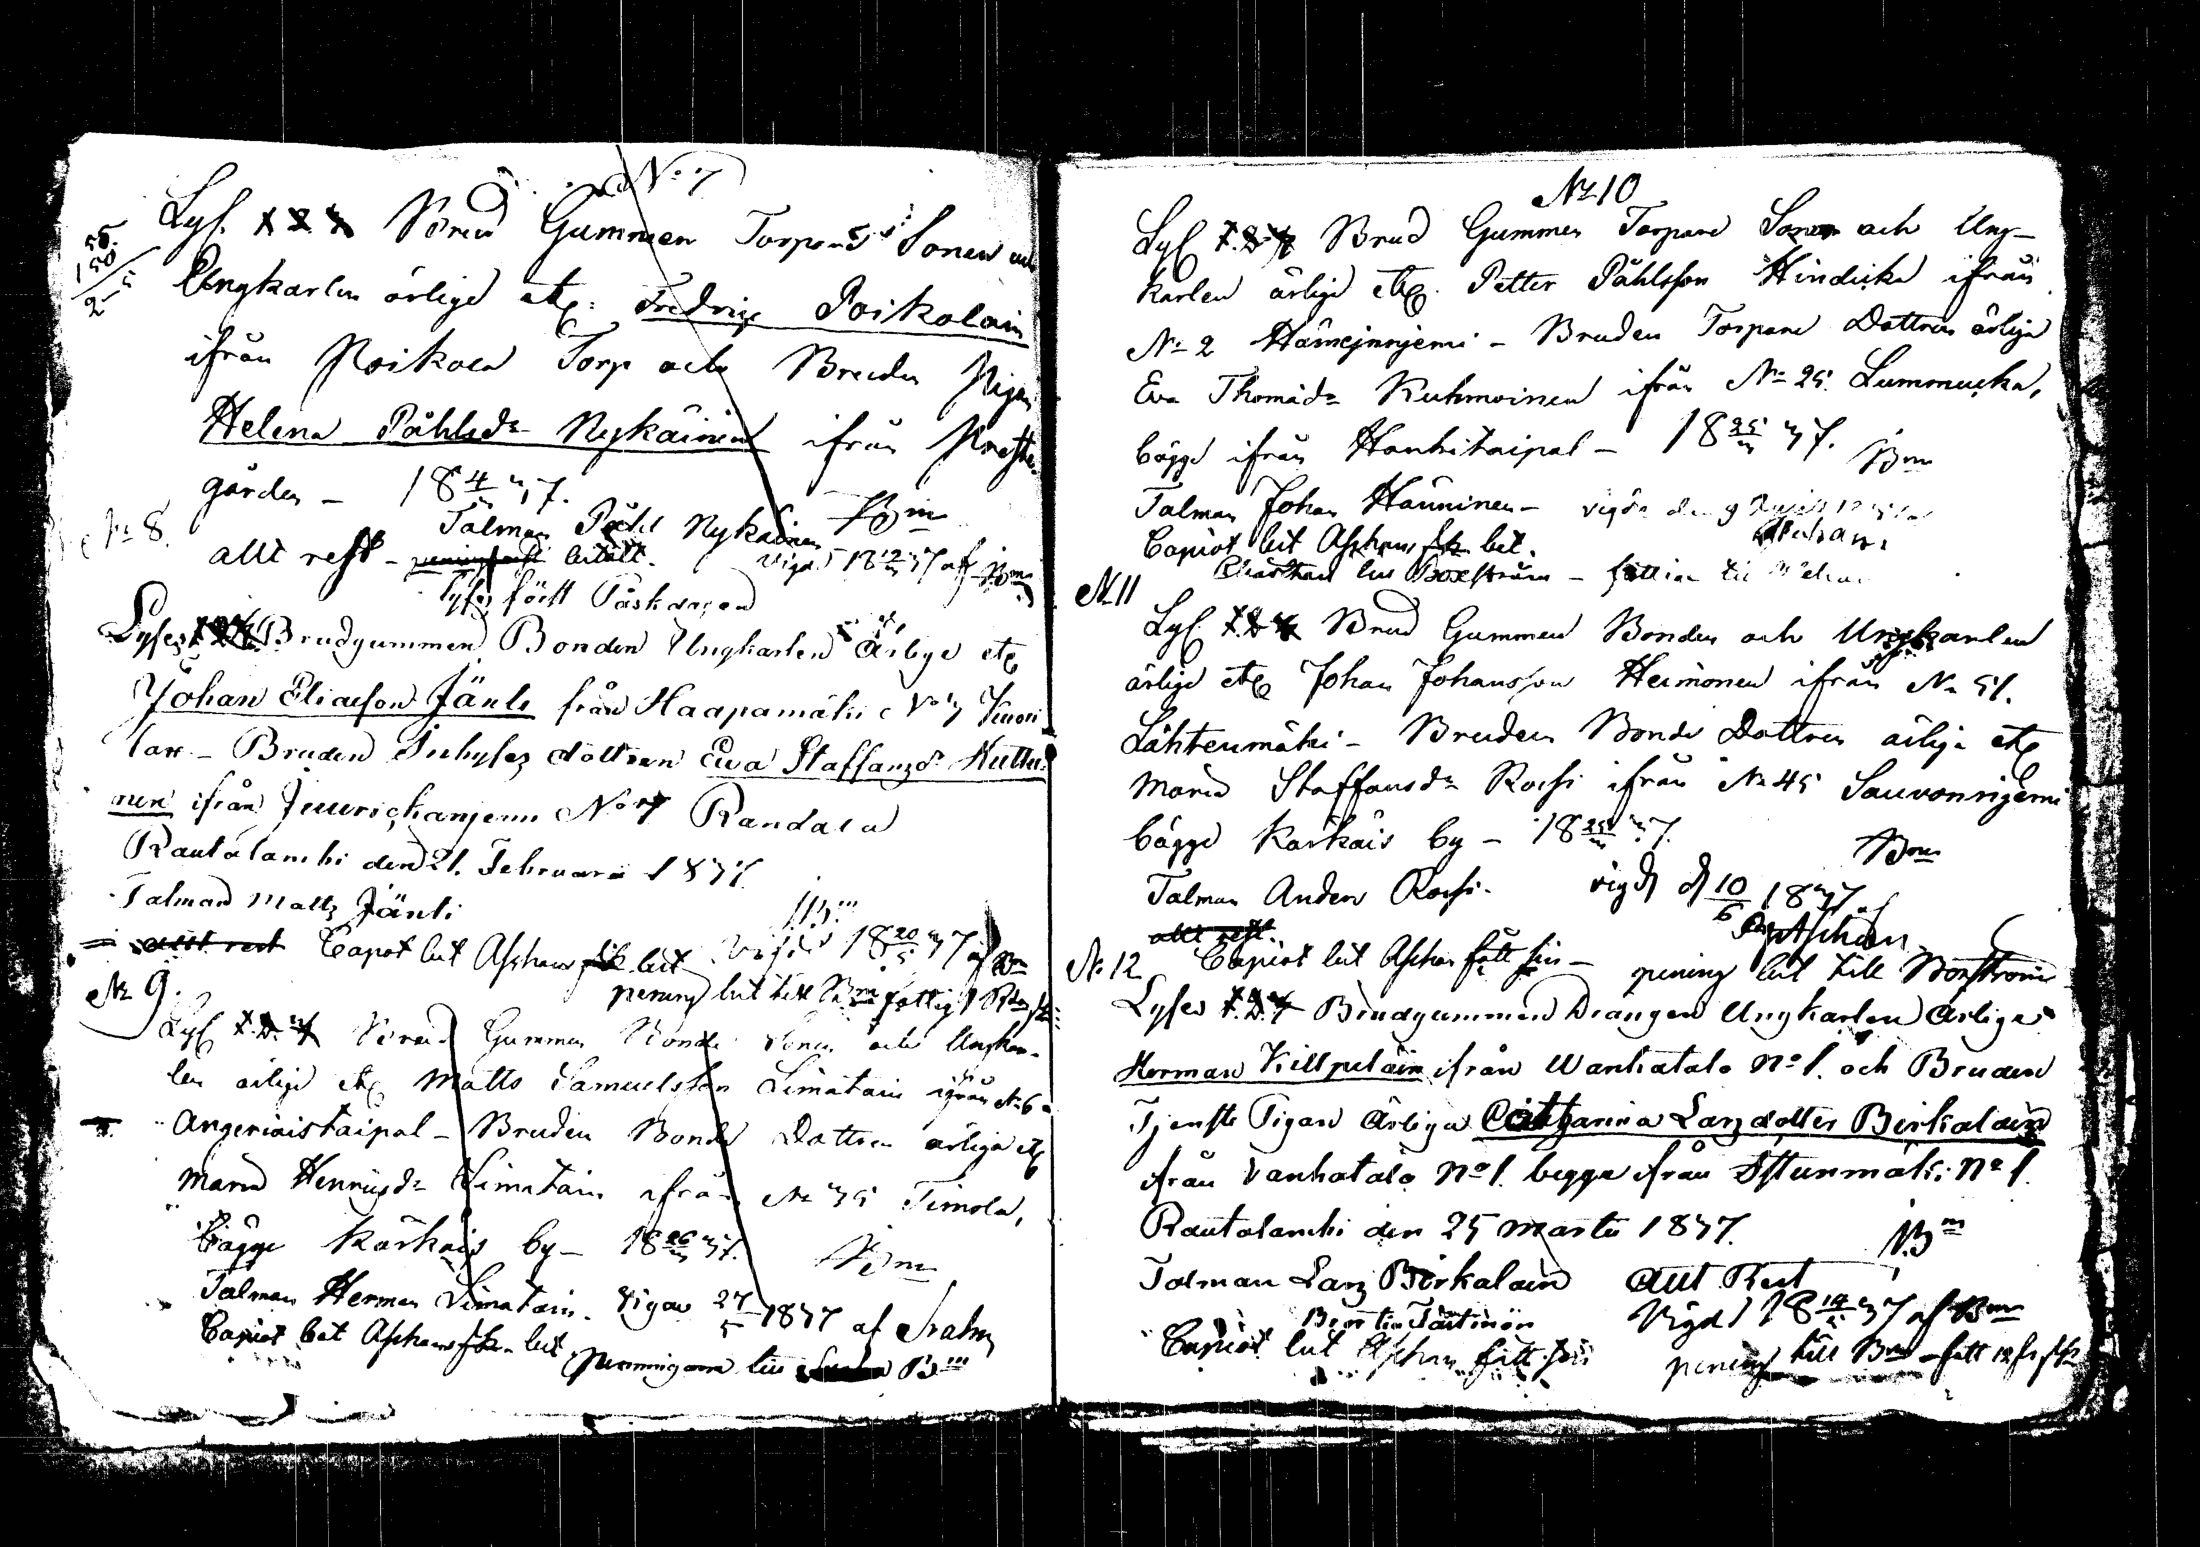 No 7
Lysf. 1 2 3 Brud Gummen Torpare Sonen och
Ungkarlen ärlige etc: Fredric Poikolain
ifrån Poikola Torp och Bruden Pigan
Helena Påhlsdr Nykäinen ifrån Preste-
gården - 18 4/3 37.
Bm
Talman Påhl Nykäinen
No 8.
allt rest - betalt. vigd 18 12/3 37 af Bm
Lyses först Påskdagen
Lyses 1 2 3 Brudgummen Bonden Ungkarlen Ärlige etc
Johan Eliasson Jänts från Haapamäki No 3
Bruden Inhyses dottren Eva Staffansdr Huttu-
nen ifrån No 7 Randala
Rautalambi den 21. Februari 1837.
Talman Matts Jänti
Bm
allt rest Capot lut Aschan fik. lut Vigd 18 20/5 37 af Bm
pening lut till Bm fattig
No 9.
Lysf 1. 2. 3 Brud Gummen Bonde Sonen och Ungkar-
len ärlige etc Matts Samuelsson Limatain ifrån No 6
Angeriaistaipal - Bruden Bonde Dottren ärliga etc
Maria Henricsdr Limatain ifrån No 35 Timola,
bägge Kärkäis by - 18 26/3 37.
Bm
Talman Herman Limatain. vigde 27/5 1837 af Frahm
Capiot lut Aschan fik. lut
penningarne till Bm
No 10
Lysf 1. 2. 3 Brud Gummen Torpare Sonen och Ung-
karlen ärlige etc. Petter Påhlsson Hindicka ifrån
No 2 Hämejnnjemi - Bruden Torpare Dottren ärliga
Eva Thomædr Kuhmoinen ifrån No 25. Lumonucka,
bägge ifrån Hanhitaipal - 18 25/3 37.
Bm
Talman Johan Hänninen - vigde den 9
Aschan.
Capiot lut Aschan fik. lut.
Boxström -
No 11
Lysf 1. 2. 3 Brud Gummen Bonden och Ungkarlen
ärlige etc Johan Johansson Heimonen ifrån No 51.
Lähtenmäki - Bruden Bonde Dottren ärliga etc
Maria Staffansdr Rossi ifrån No 45 Sauvonnjemi
bägge Kärkäis by - 18 25/3 37.
Bm
Talman Anders Rossi. vigd d 10/6 1837 af
Aschan
allt rest.
Capiot lut Aschan fått sin - pening lut till Boxström
No 12
Lyses 1. 2. 3 Brudgummen Drängen Ungkarlen Ärlige
Herman Killpeläin ifrån Wanhatalo No 1. och Bruden
Tjenste Pigan Ärliga Catharina Larsdotter Birkalain
från Vanhatalo No 1. begge från Istunmäki No 1.
Rautalambi den 25 Martii 1837.
Bm
Talman Lars Birkalain Allt Rest
Vigd 18 14/5 37 af Bm
Capiot lut Aschan fått sin pening till Bm - fatt 12